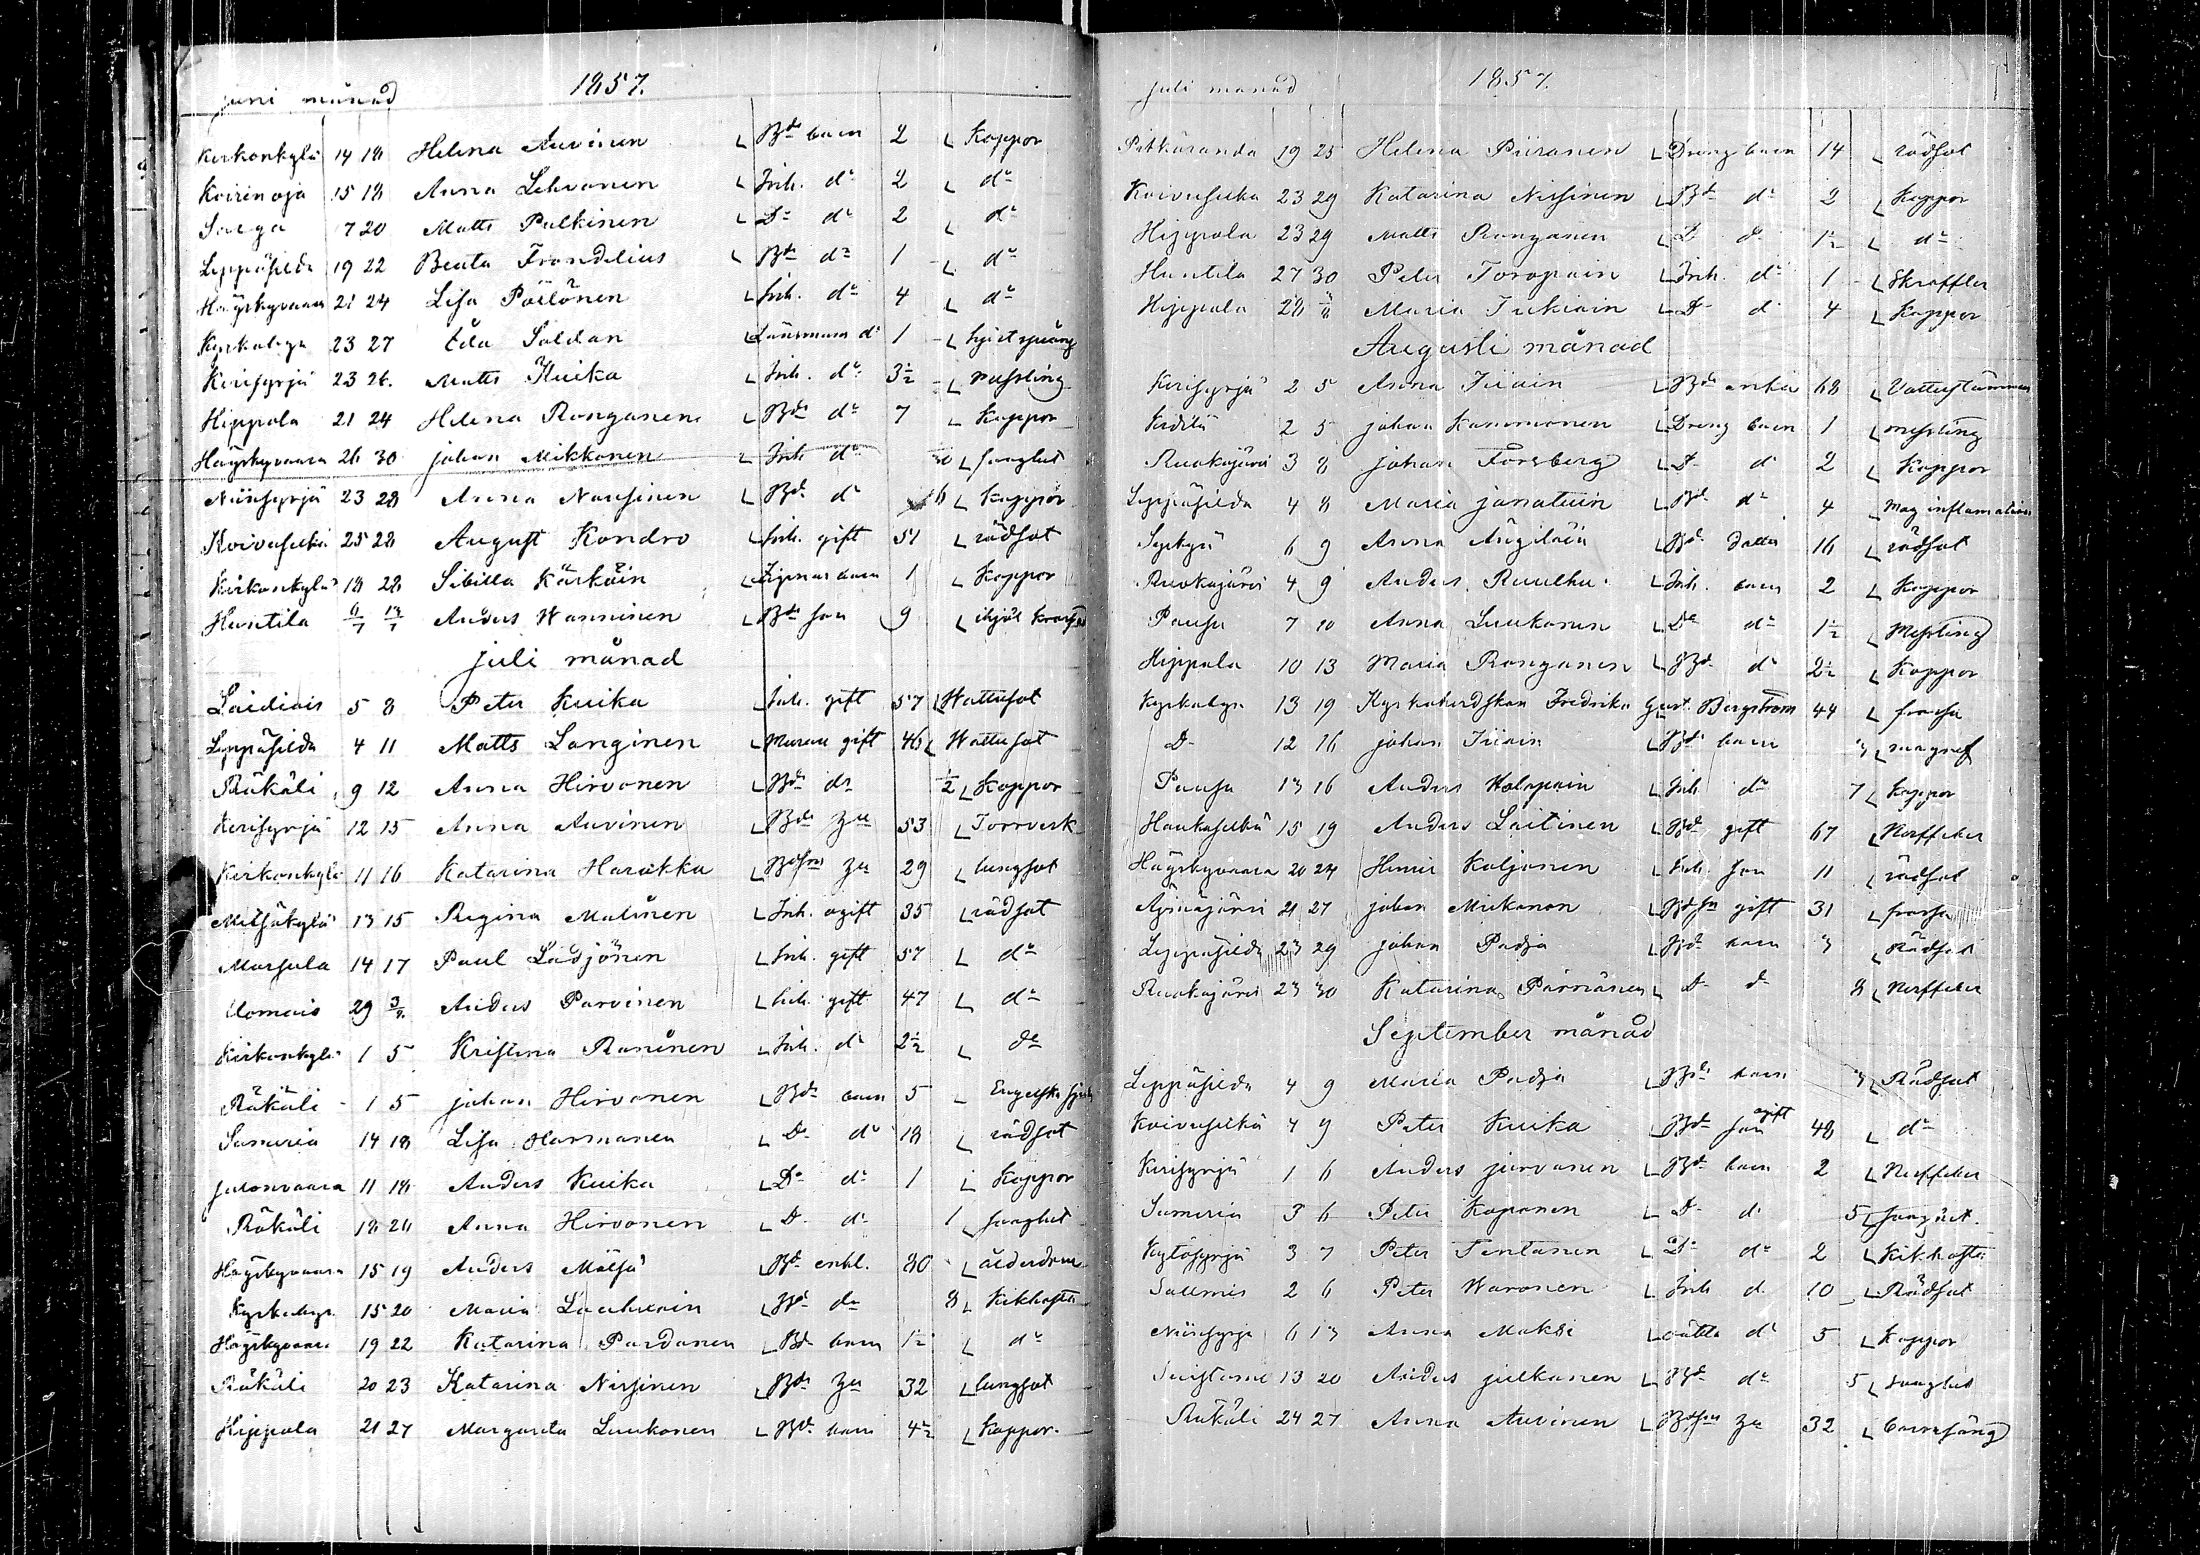 juni månad 1857.
Kirkonkylä 14 18 Helena Auvinen Bde barn 2 Koppor
Koirinoja 15 18 Anna Lehvonen Inh. do 2 do
7 20 Matts Pulkinen Do do 2 do
Leppäsilda 19 22 Beata Frondelius Bde do 1 do
Häyskyvaara 21 24 Lisa Pöllönen Inh. do 4 do
Kyrkobyn 23 27 Eda Soldan Länsmans do 1
Kirisyrjä 23 26 Matts Kuika Inh. do 3½ messling
Hippola 21 24 Helena Ronganen Bde do 7 Koppor
Häyskyvaara 26 30 Johan Mikkonen Inh do
Niinsyrjä 23 28 Anna Nousinen Bde do 6 Koppor
Koivuselkä 25 28 August Kondro Inh. gift 51 rödsot
Kirkonkylä 18 28 Sibilla Kärkäin barn 1 Koppor
Huntila 6/7 13/7 Anders Wanninen Bde son 9
Juli månad
Läidiois 5 8 Peter Kuika Inh. gift 57 Wattusot
Leppäsilda 4 11 Matts Langinen Murare gift 46 Wattusot
Räkäli 9 12 Anna Hirvonen Bde do ½ Koppor
Kerisyrjä 12 15 Anna Auvinen Bde 53 Torrverk
Kirkonkylä 11 16 Katarina Harakka 29 lungsot
Mitsäkylä 13 15 Regina Malinen Inh. ogift 35 rödsot
Marsula 14 17 Paul Lädjönen Inh. gift 57 do
Uomais 29 3/8 Anders Parvinen Inh. gift 47 do
Kirkonkylä 1 5 Kristina Raninen Inh. do 2½ do
Räkäli 1 5 Johan Hirvonen Bde barn 5 Engelska
Sumeria 14 18 Lisa Harmanen Do do 18 rödsot
Jaronvaara 11 18 Anders Kuika Do do 1 Koppor
Räkäli 18 20 Anna Hirvonen Do do 1
Häyskyvaara 15 19 Anders Mälsä Bde enkl. 80 ålderdom
Kyrkobyn 15 20 Maria Laukain Bde do 8 Kikhosta
Häyskyvaara 19 22 Katarina Pardanen Bde barn 1½ do
Räkäli 20 23 Katarina Nissinen Bde 32 lungsot
Hippola 21 27 Margareta Luukonen Bde barn 4½ Koppor.
Juli månad 1857.
Pitkäranda 19 25 Helena Piiranen Dreng barn 14 rödsot
Koivuselkä 23 29 Katarina Nissinen Bde do 2 Koppor
Hippola 23 29 Matts Ronganen Do do 1½ do
Huntila 27 30 Peter Toropain Inh. do 1 Skroffler
Hippola 28 Maria Iukiain Do do 4 Koppor
Augusti månad
Kirisyrjä 2 5 Anna Iiiain Bde enka 68
2 5 Johan Kammonen Dreng barn 1 messling
Ruokojärvi 3 8 Johan Forsberg Do do 2 Koppor
Leppäsilda 4 8 Maria Janatuin Bde do 4 Mag inflamation
Syskyä 6 9 Anna Äugiläin Bde dotter 16 rödsot
Ruokojärvi 4 9 Anders Inh. barn 2 Koppor
Pausu 7 10 Anna Luukonen Do do 1½ Messling
Hippola 10 13 Maria Ronganen Bde do 2½ Koppor
Kyrkobyn 13 19 Kyrkoherdskan Fredrika Gust. Bergström 44 frossa
Do 12 16 Johan Iiiain Bde barn 3 magref
Pausu 13 16 Anders Holopain Inh do 7 Koppor
Haukaselkä 15 19 Anders Laitinen Bde gift 67 Nerffeber
Häyskyvaara 20 24 Henric Koljonen Inh. son 11 rödsot
21 27 Johan Miikonan gift 31 frossa
Leppäsilda 23 29 Johan Padja Bde barn 3 Rödsot
Ruokojärvi 23 30 Katarina Pärnänen Do do 8 Nerffeber
September månad
Leppäsilda 4 9 Maria Padja Bde barn 3 Rödsot
Koivuselkä 4 9 Peter Kuika Bde son ogift 48 do
Kirisyrjä 1 6 Anders Jurvanen Bde barn 2 Nerffeber
Sumeria 3 6 Peter Koponen Do do 5
Kylösyrjä 3 7 Peter Tentanen Do do 2 Kikhosta
Sallmis 2 6 Peter Waronen Inh do 10 Rödsot
Niinsyrjä 6 13 Anna Maksi do 5 Koppor
Suistamo 13 20 Anders Julkunen Bde do 5
Räkäli 24 27 Anna Auvinen 32 barnsäng